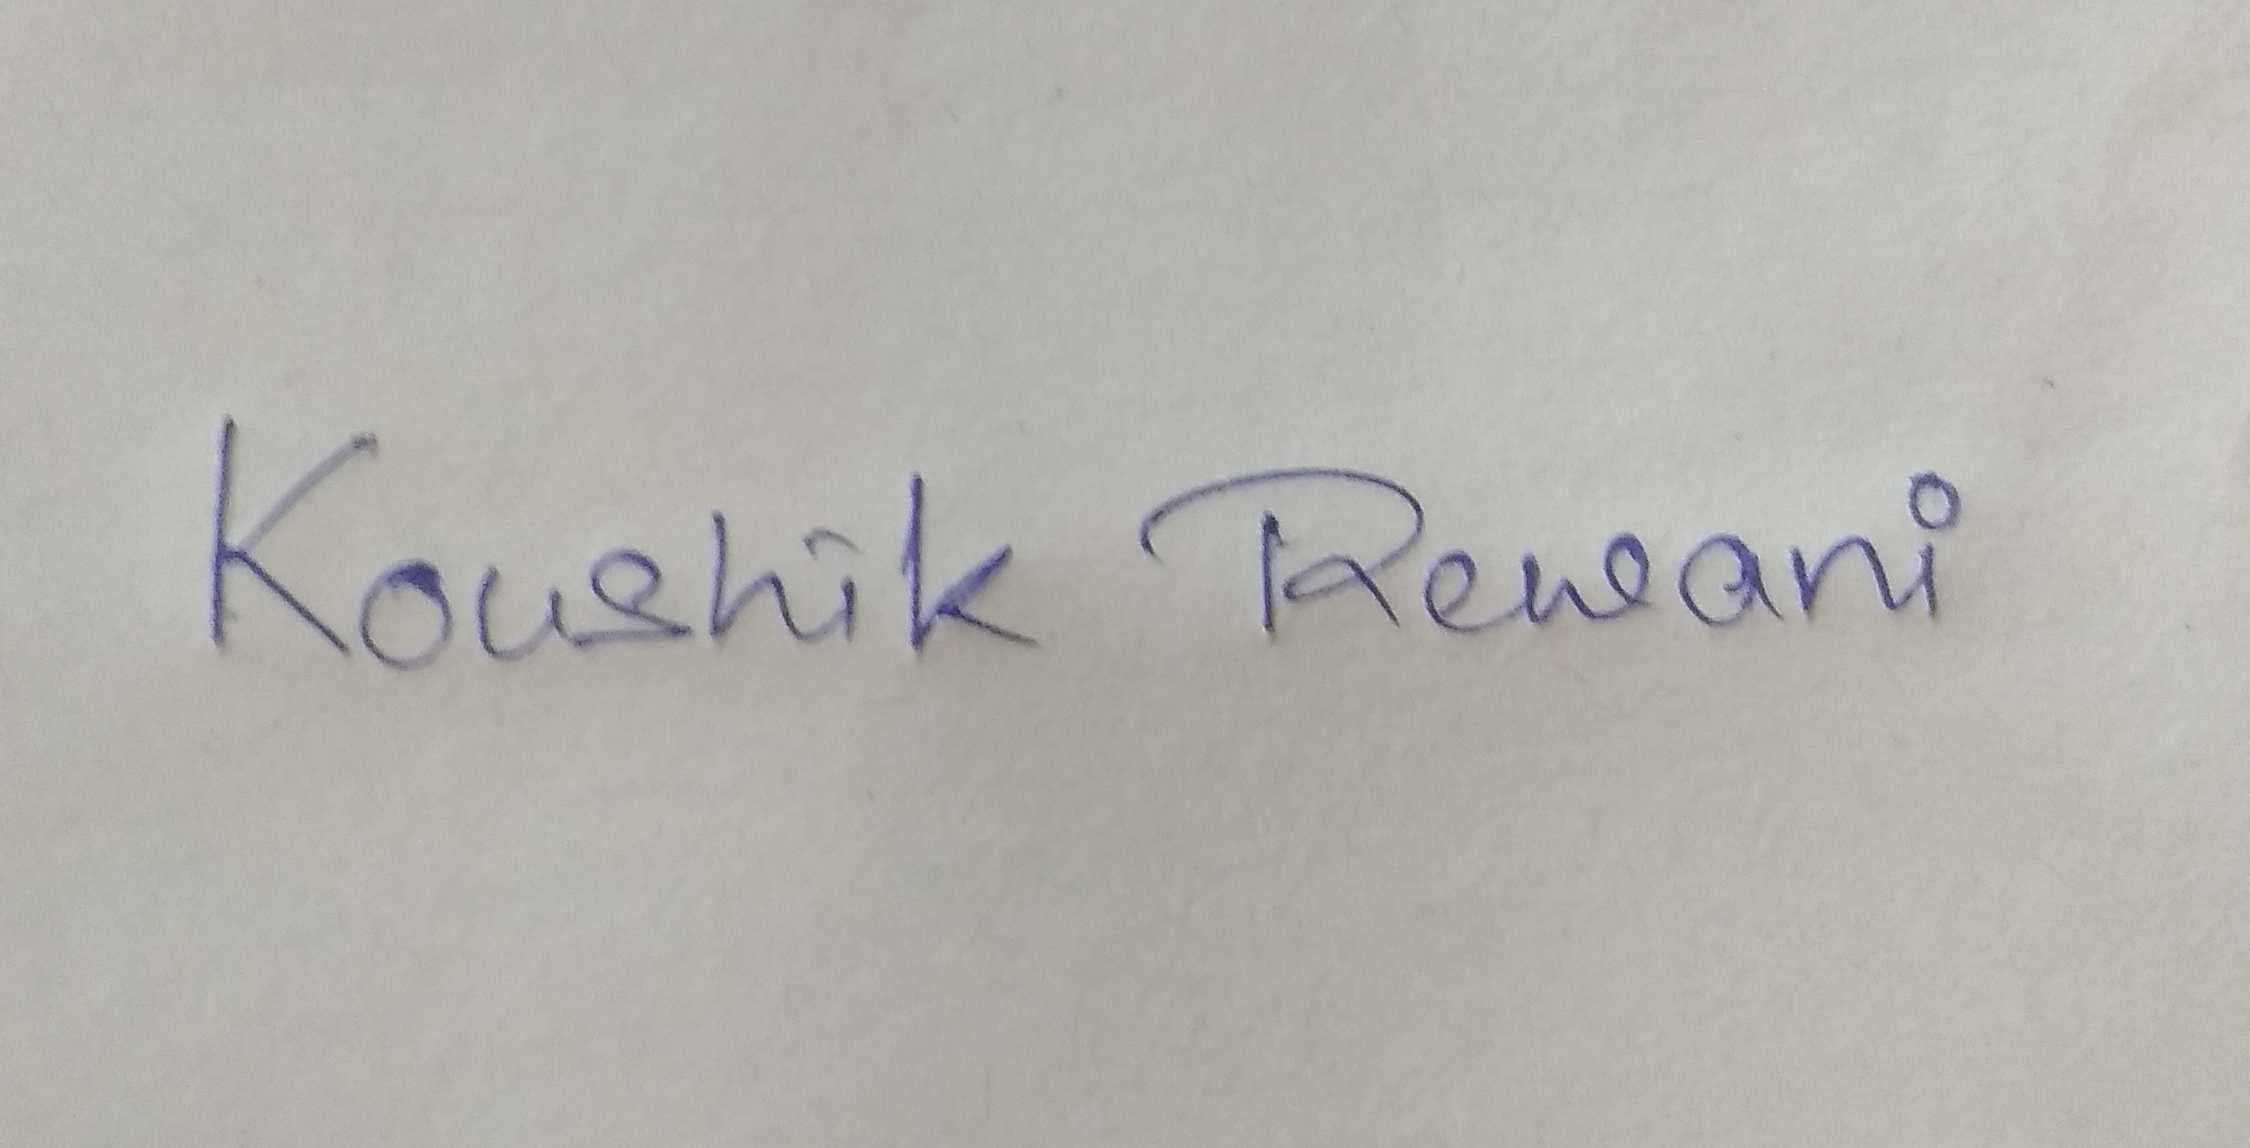 Koushik Rewani